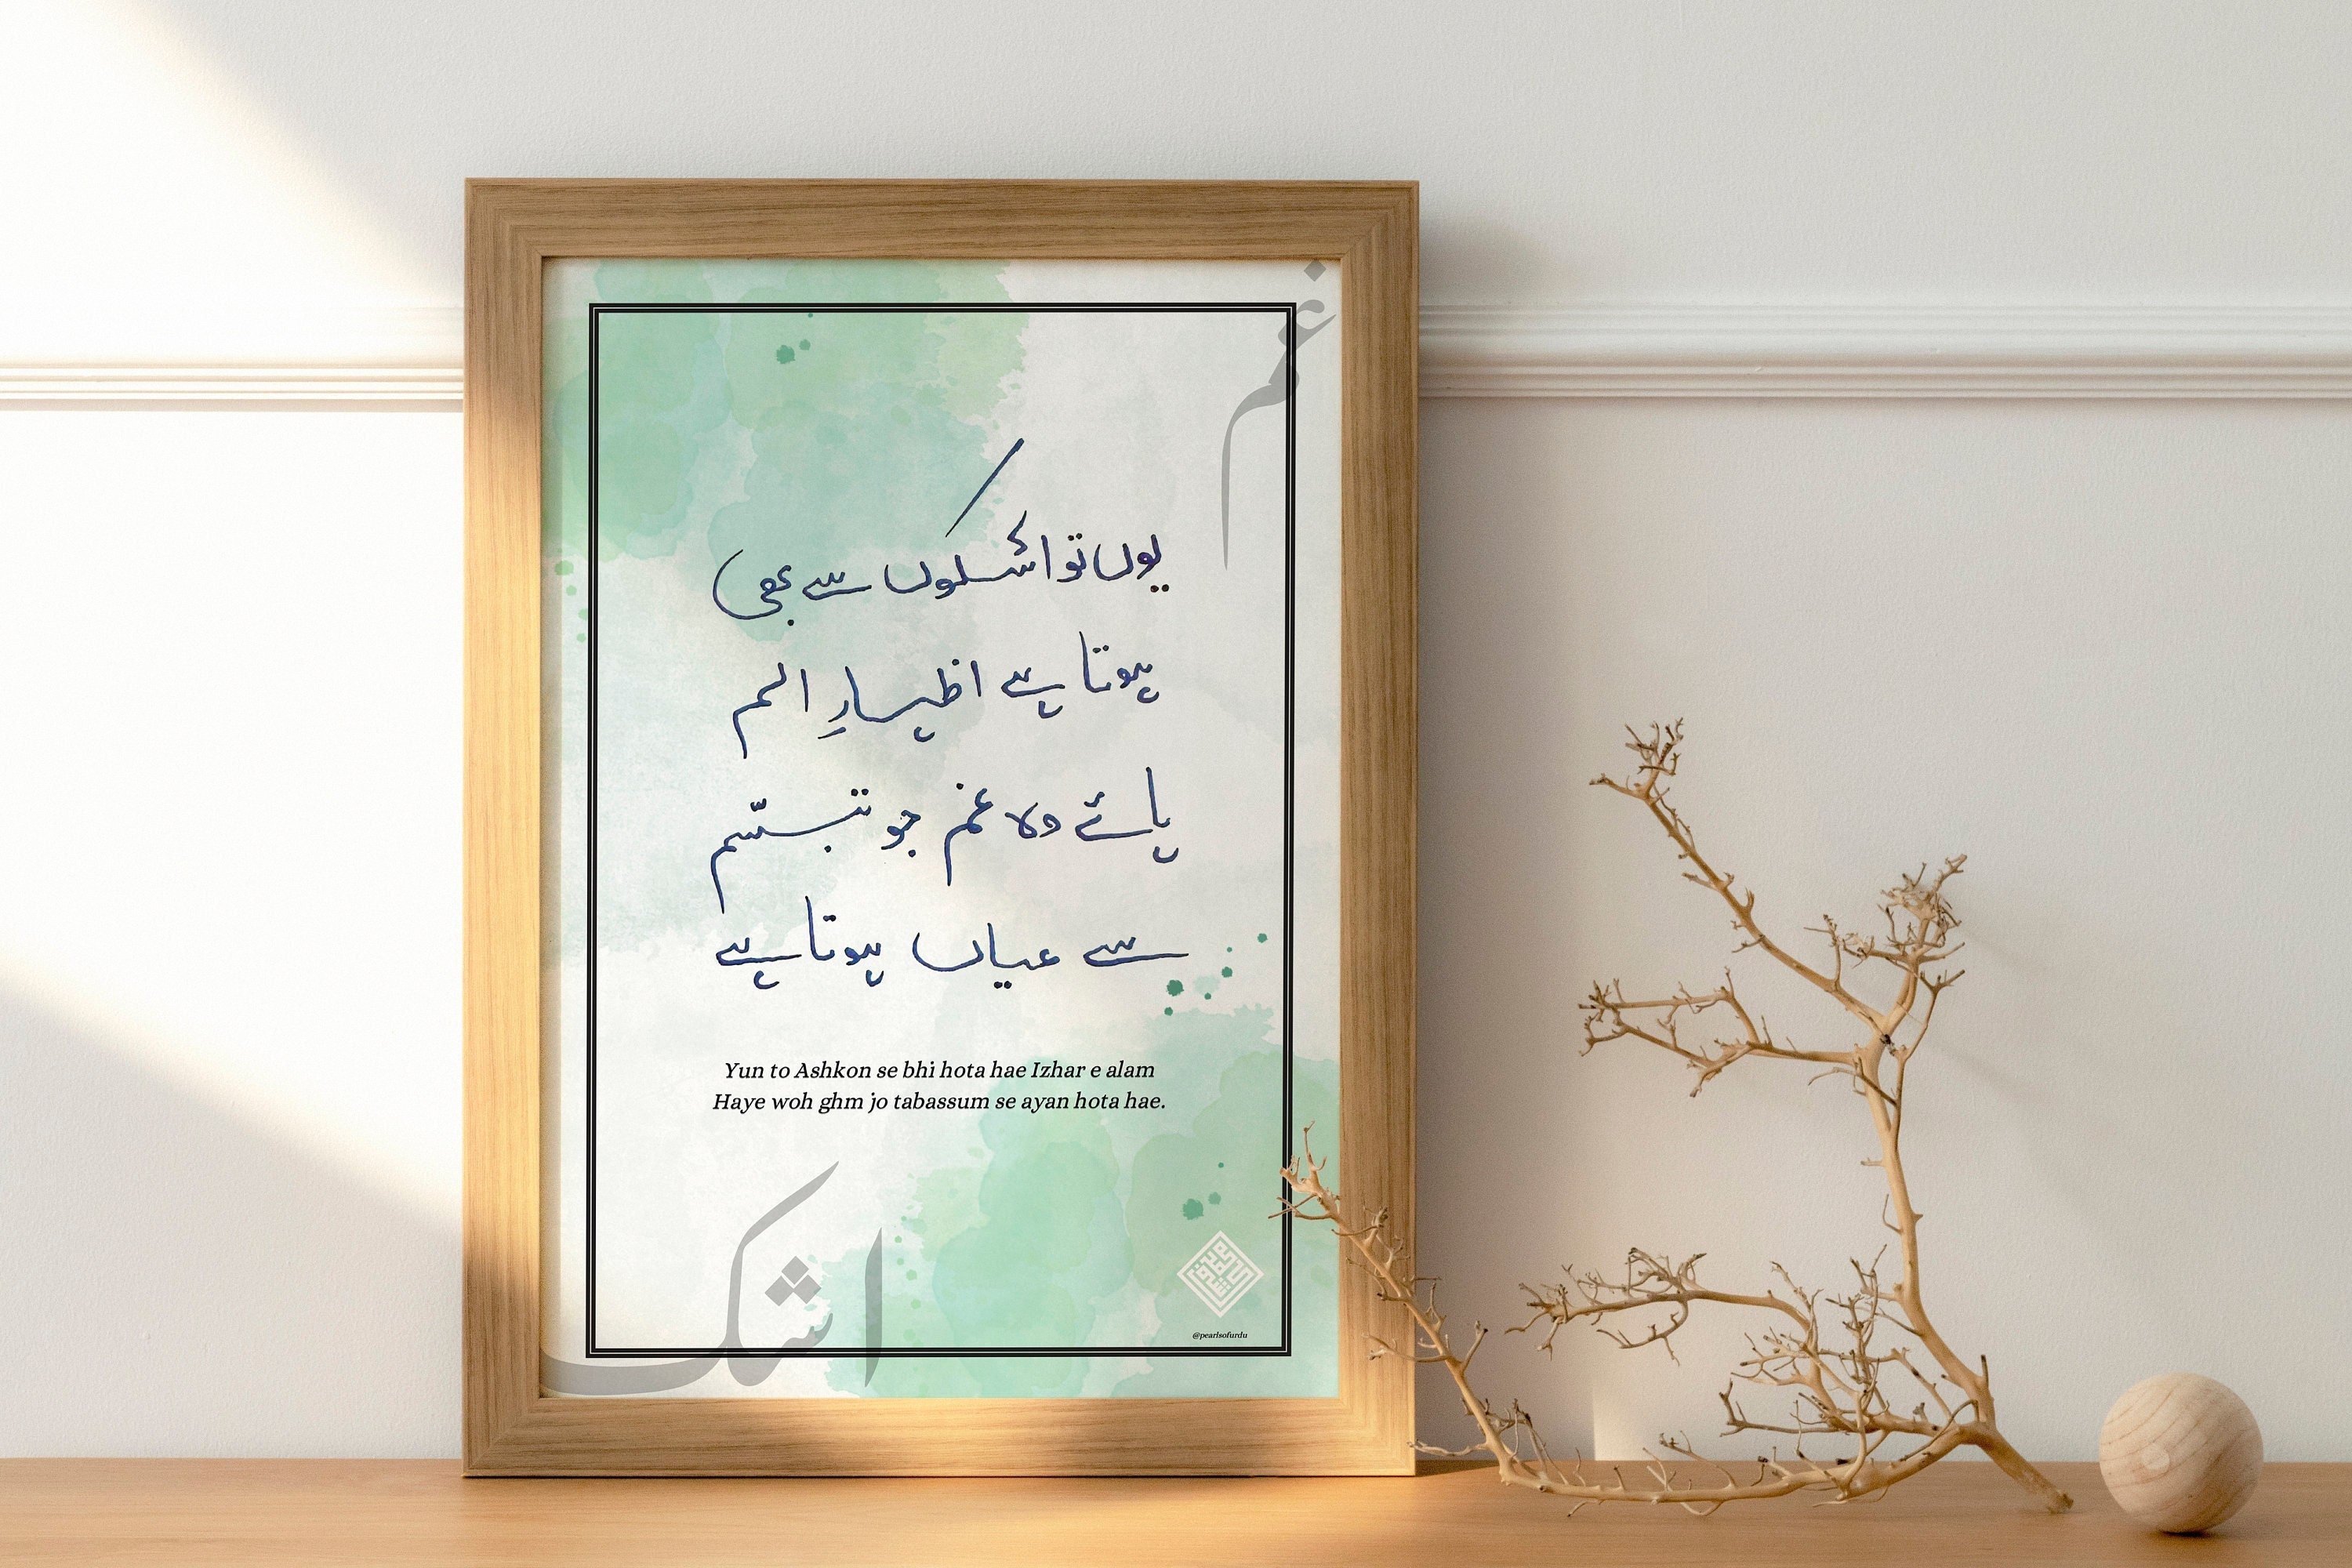 غم
یوں تو اشکوں سے بھی
ہوتا ہے اظہارِ الم
ہائے وہ غم جو تبسّم
سے عیاں ہوتا ہے
Yun to Ashkon se bhi hota hae Izhar e alam
Haye woh ghm jo tabassum se ayan hota hae.
اشک
@pearlsofurdu